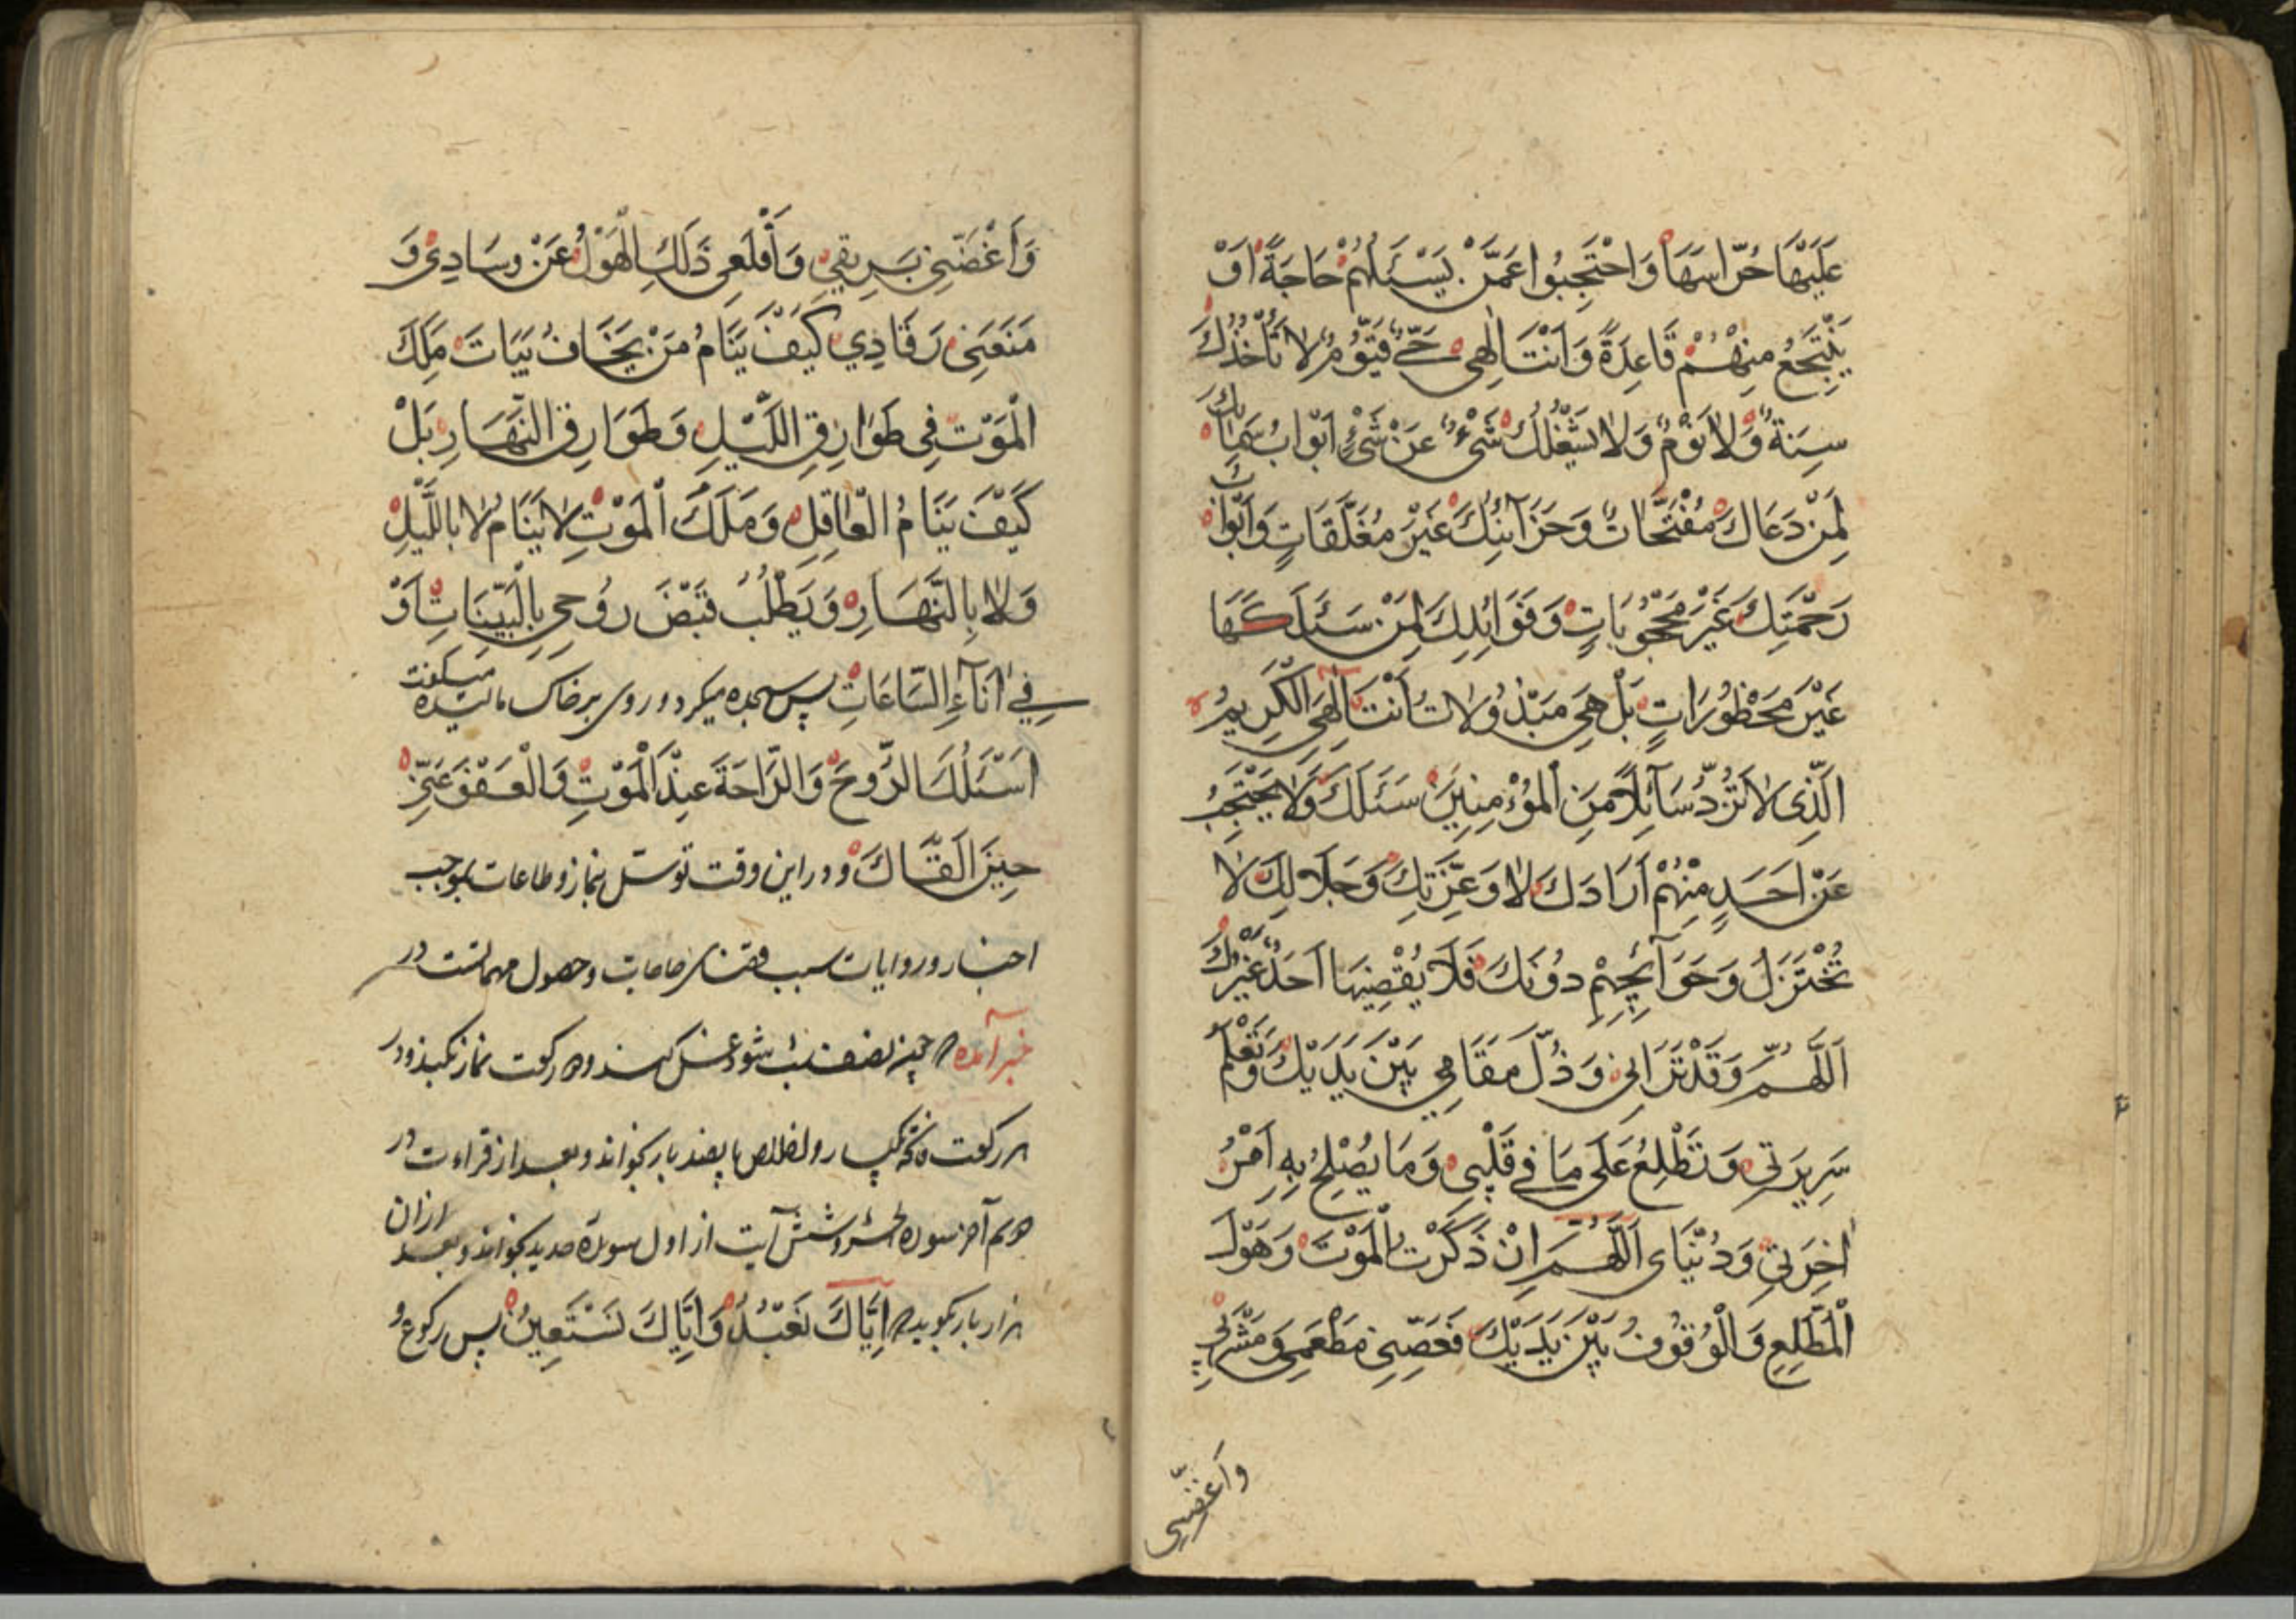 عَلَيْهَا حُرّاسَهَا وَاحْتَجِبُوا عَمَّنْ يَسْئَلُهُمْ حَاجَةً اَوْ
يَنْتَجِعُ مِنْهُمْ قَاعِدَةً وَاَنْتَ اِلٰهِى حَىٌّ قَيُّومٌ لا تَأْخُذُكَ
سِنَةٌ وَلا نَوْمٌ وَلا يَشْغَلُكَ شَىْءٌ عَنْ شَىْءٍ اَبْوابُ سَمٰائِكَ
لِمَنْ دَعَاكَ مُفْتَّحَاتٌ وَخَزَآئِنُكَ غَيْرُ مُغَلَّقَاتٍ وَاَبْوابُ
رَحْمَتِكَ غَيْرَ مَحْجُوبَاتٍ وَفَوَائِدِكَ لِمَنْ سَئَلَكَهَا
غَيْرَ مَحْظُورَاتٍ بَلْ هِىَ مَبْذُولاتٌ اَنْتَ اِلٰهِىَ الْكَرِيمُ
الَّذِى لا تَرُدُّ سَآئِلاً مِنَ الْمُؤْمِنِينَ سَئَلَكَ وَلا يَحْتَجِبُ
عَنْ اَحَدٍ مِنْهُمْ اَرَادَكَ لا وَعِزَّتِكَ وَجَلالِكَ لا
تُخْتَزَلُ وَحَوَآئِجِهِمْ دُونَكَ فَلا يُقْضِيهَا اَحَدٌ غَيْرُكَ
اَللّٰهُمَّ وَقَدْ تَرَانِى وَذُلَّ مَقَامِي بَيْنَ يَدَيْكَ وَتَعْلَمُ
سَرِيرَتِي وَتَطَّلِعُ عَلَى مَا فِي قَلْبِى وَمَا يُصْلِحُ بِهِ اَمْرُ
اٰخِرَتِي وَدُنْيَاى اَللّٰهُمَّ اِنْ ذَكَرْتُ الْمَوْتَ وَهَوْلَ
الْمُطَّلِعِ وَالْوُقُوفُ بَيْنَ يَدَيْكَ فَغَصِّنِى مَطْعَمِى وَمَشْرَبِى
وَاَغَصَّنِى
وَاَغْصَّنِى بَرِيقِي وَاَقْلَعِى ذَلِكَ الْهَوْلُ عَنْ وِسَادِى وَ
مَنَعَنِى رَقَادِي كَيْفَ يَنَامُ مَنْ يَخَافُ بَيَاتَ مَلَكَ
الْمَوْتِ فِى طَوَارِقِ اللَّيْلِ وَطَوَارِقِ النَّهَارِ بَلْ
كَيْفَ يَنَامُ الْعٰاقِلِ وَمَلَكَ الْمَوْتِ لا يَنَامُ لا بِاللَّيْلِ
وَلا بِالنَّهَارِ وَيَطْلُبُ قَبْضَ رُوحِي بِالْبَيِّنَاتِ اَوْ
فِى اٰنَآءِ السَّاعَاتِ پس سجده میکرد و روی بر خاک مالیده میگفت
اَسْئَلُكَ الرُّوحَ وَالرّاحَةَ عِنْدَ الْمَوْتِ وَالْعَفْوَ عَنِّى
حِينَ اَلْقَاكَ و در این وقت توسّل بنماز و طاعات بموجب
اخبار و روایات سبب قضای حاجات و حصول مهمانست در
خبر آمده چون نصف شب شود غسل کند و دو رکعت نماز بکند و در
هر رکعت فاتحه یکبار و اخلاص پانصد بار بخواند و بعد از قراءت در
دویم آخر سوره الحشر و شش آیت از اول سورة حدید بخواند و بعد از ان
هزار بار بگوید اِيّاكَ نَعْبُدُ وَاِيّاكَ نَسْتَعِينُ پس رکوع و